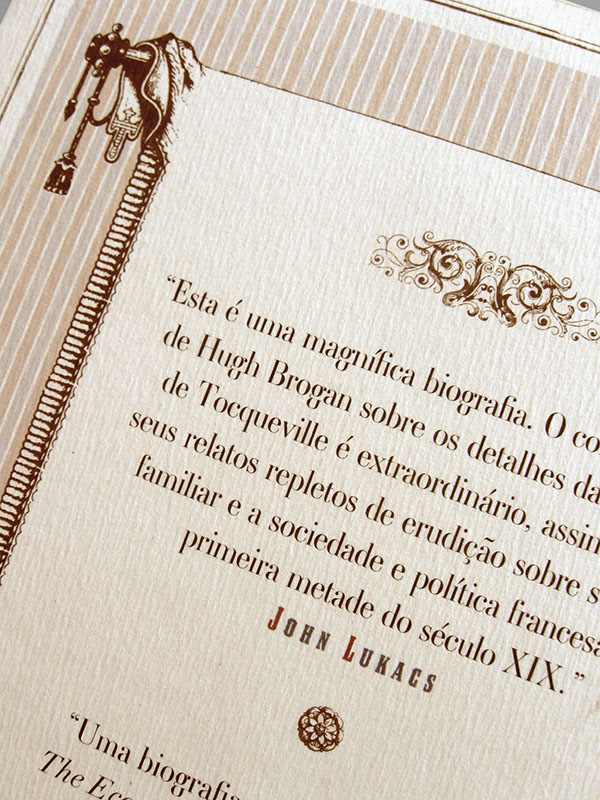 “Esta é uma magnífica biografia. O co
de Hugh Brogan sobre os detalhes da
de Tocqueville é extraordinário, assim
seus relatos repletos de erudição sobre s
familiar e a sociedade e política francesa
primeira metade do século XIX.”
JOHN LUKACS
“Uma biografia
The Eco